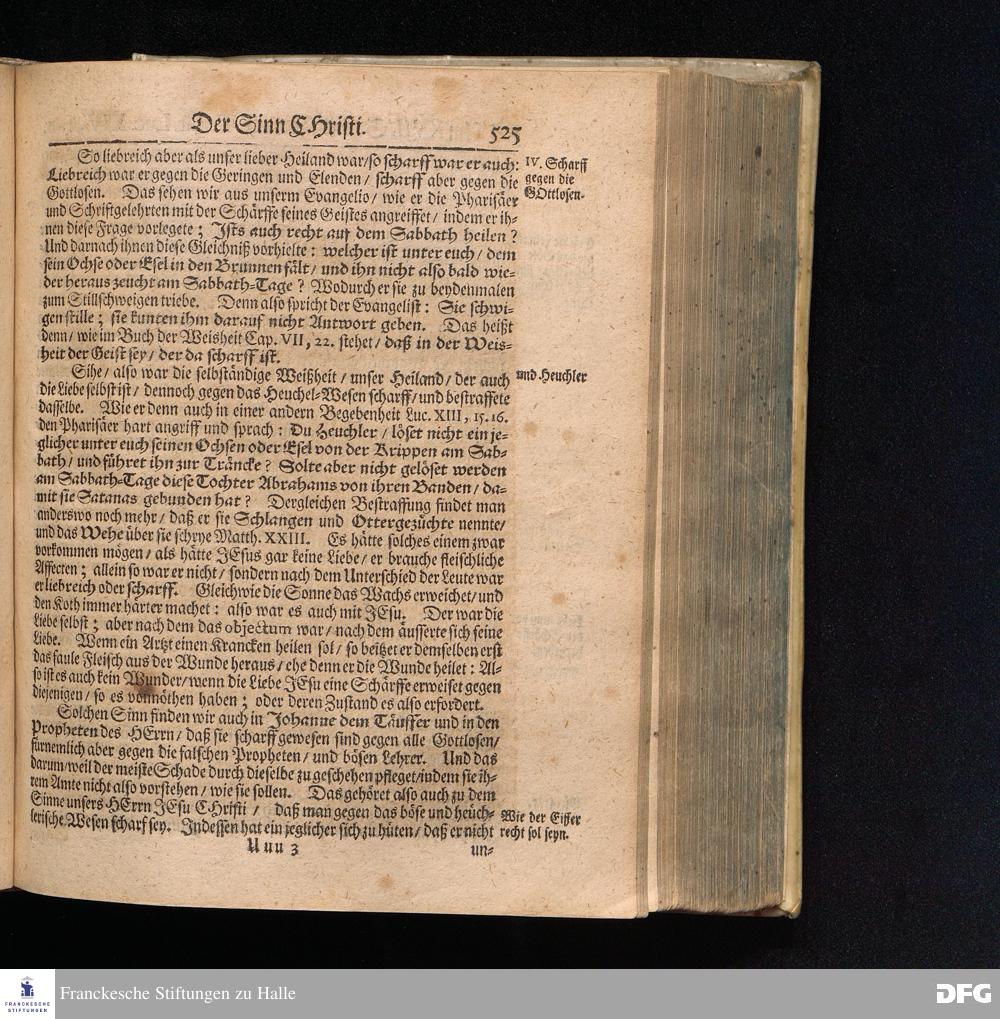 Der Sinn CHristi.
525
So liebreich aber als unser lieber Heiland war/ so scharff war er auch:
Liebreich war er gegen die Geringen und Elenden/ scharff aber gegen die
Gottlosen. Das sehen wir aus unserm Evangelio/ wie er die Pharisäer
und Schriftgelehrten mit der Schärffe seines Geistes angreiffet/ indem er ih-
nen diese Frage vorlegete; Ists auch recht auf dem Sabbath heilen?
Und darnach ihnen diese Gleichniß vorhielte: welcher ist unter euch/ dem
sein Ochse oder Esel in den Brunnen fält/ und ihn nicht also bald wie-
der heraus zeucht am Sabbath-Tage? Wodurch er sie zu beydenmalen
zum Stillschweigen triebe. Denn also spricht der Evangelist: Sie schwi-
gen stille; sie kunten ihm darauf nicht Antwort geben. Das heißt
denn/ wie im Buch der Weisheit Cap. VII, 22. stehet/ daß in der Weis-
heit der Geist sey/ der da scharff ist.
IV. Scharff
gegen die
GOttlosen.
Sihe/ also war die selbständige Weißheit/ unser Heiland/ der auch
die Liebe selbst ist/ dennoch gegen das Heuchel-Wesen scharff/ und bestraffete
dasselbe. Wie er denn auch in einer andern Begebenheit Luc. XIII, 15. 16.
den Pharisäer hart angriff und sprach: Du Heuchler/ löset nicht ein je-
glicher unter euch seinen Ochsen oder Esel von der Krippen am Sab-
bath/ und führet ihn zur Träncke? Solte aber nicht gelöset werden
am Sabbath-Tage diese Tochter Abrahams von ihren Banden/ da-
mit sie Satanas gebunden hat? Dergleichen Bestraffung findet man
anderswo noch mehr/ daß er sie Schlangen und Ottergezüchte nennte/
und das Wehe über sie schrye Matth. XXIII. Es hätte solches einem zwar
vorkommen mögen/ als hätte JEsus gar keine Liebe/ er brauche fleischliche
Affecten; allein so war er nicht/ sondern nach dem Unterschied der Leute war
er liebreich oder scharff. Gleichwie die Sonne das Wachs erweichet/ und
den Koth immer härter machet: also war es auch mit JEsu. Der war die
Liebe selbst; aber nach dem das objectum war/ nach dem äusserte sich seine
Liebe. Wenn ein Artzt einen Krancken heilen sol/ so beitzet er demselben erst
das faule Fleisch aus der Wunde heraus/ ehe denn er die Wunde heilet: Al-
so ist es auch kein Wunder/ wenn die Liebe JEsu eine Schärffe erweiset gegen
diejenigen/ so es vonnöthen haben; oder deren Zustand es also erfordert.
und Heuchler
Solchen Sinn finden wir auch in Johanne dem Täuffer und in den
Propheten des HErrn/ daß sie scharff gewesen sind gegen alle Gottlosen/
fürnemlich aber gegen die falschen Propheten/ und bösen Lehrer. Und das
darum/ weil der meiste Schade durch dieselbe zu geschehen pfleget/ indem sie ih-
rem Amte nicht also vorstehen/ wie sie sollen. Das gehöret also auch zu dem
Sinne unsers HErrn JEsu CHristi/ daß man gegen das böse und heuch-
lerische Wesen scharf sey. Indessen hat ein jeglicher sich zu hüten/ daß er nicht
Wie der Eiffer
recht sol seyn.
Uuu 3
un-
FRANCKESCHE
STIFTUNGEN
Franckesche Stiftungen zu Halle
DFG